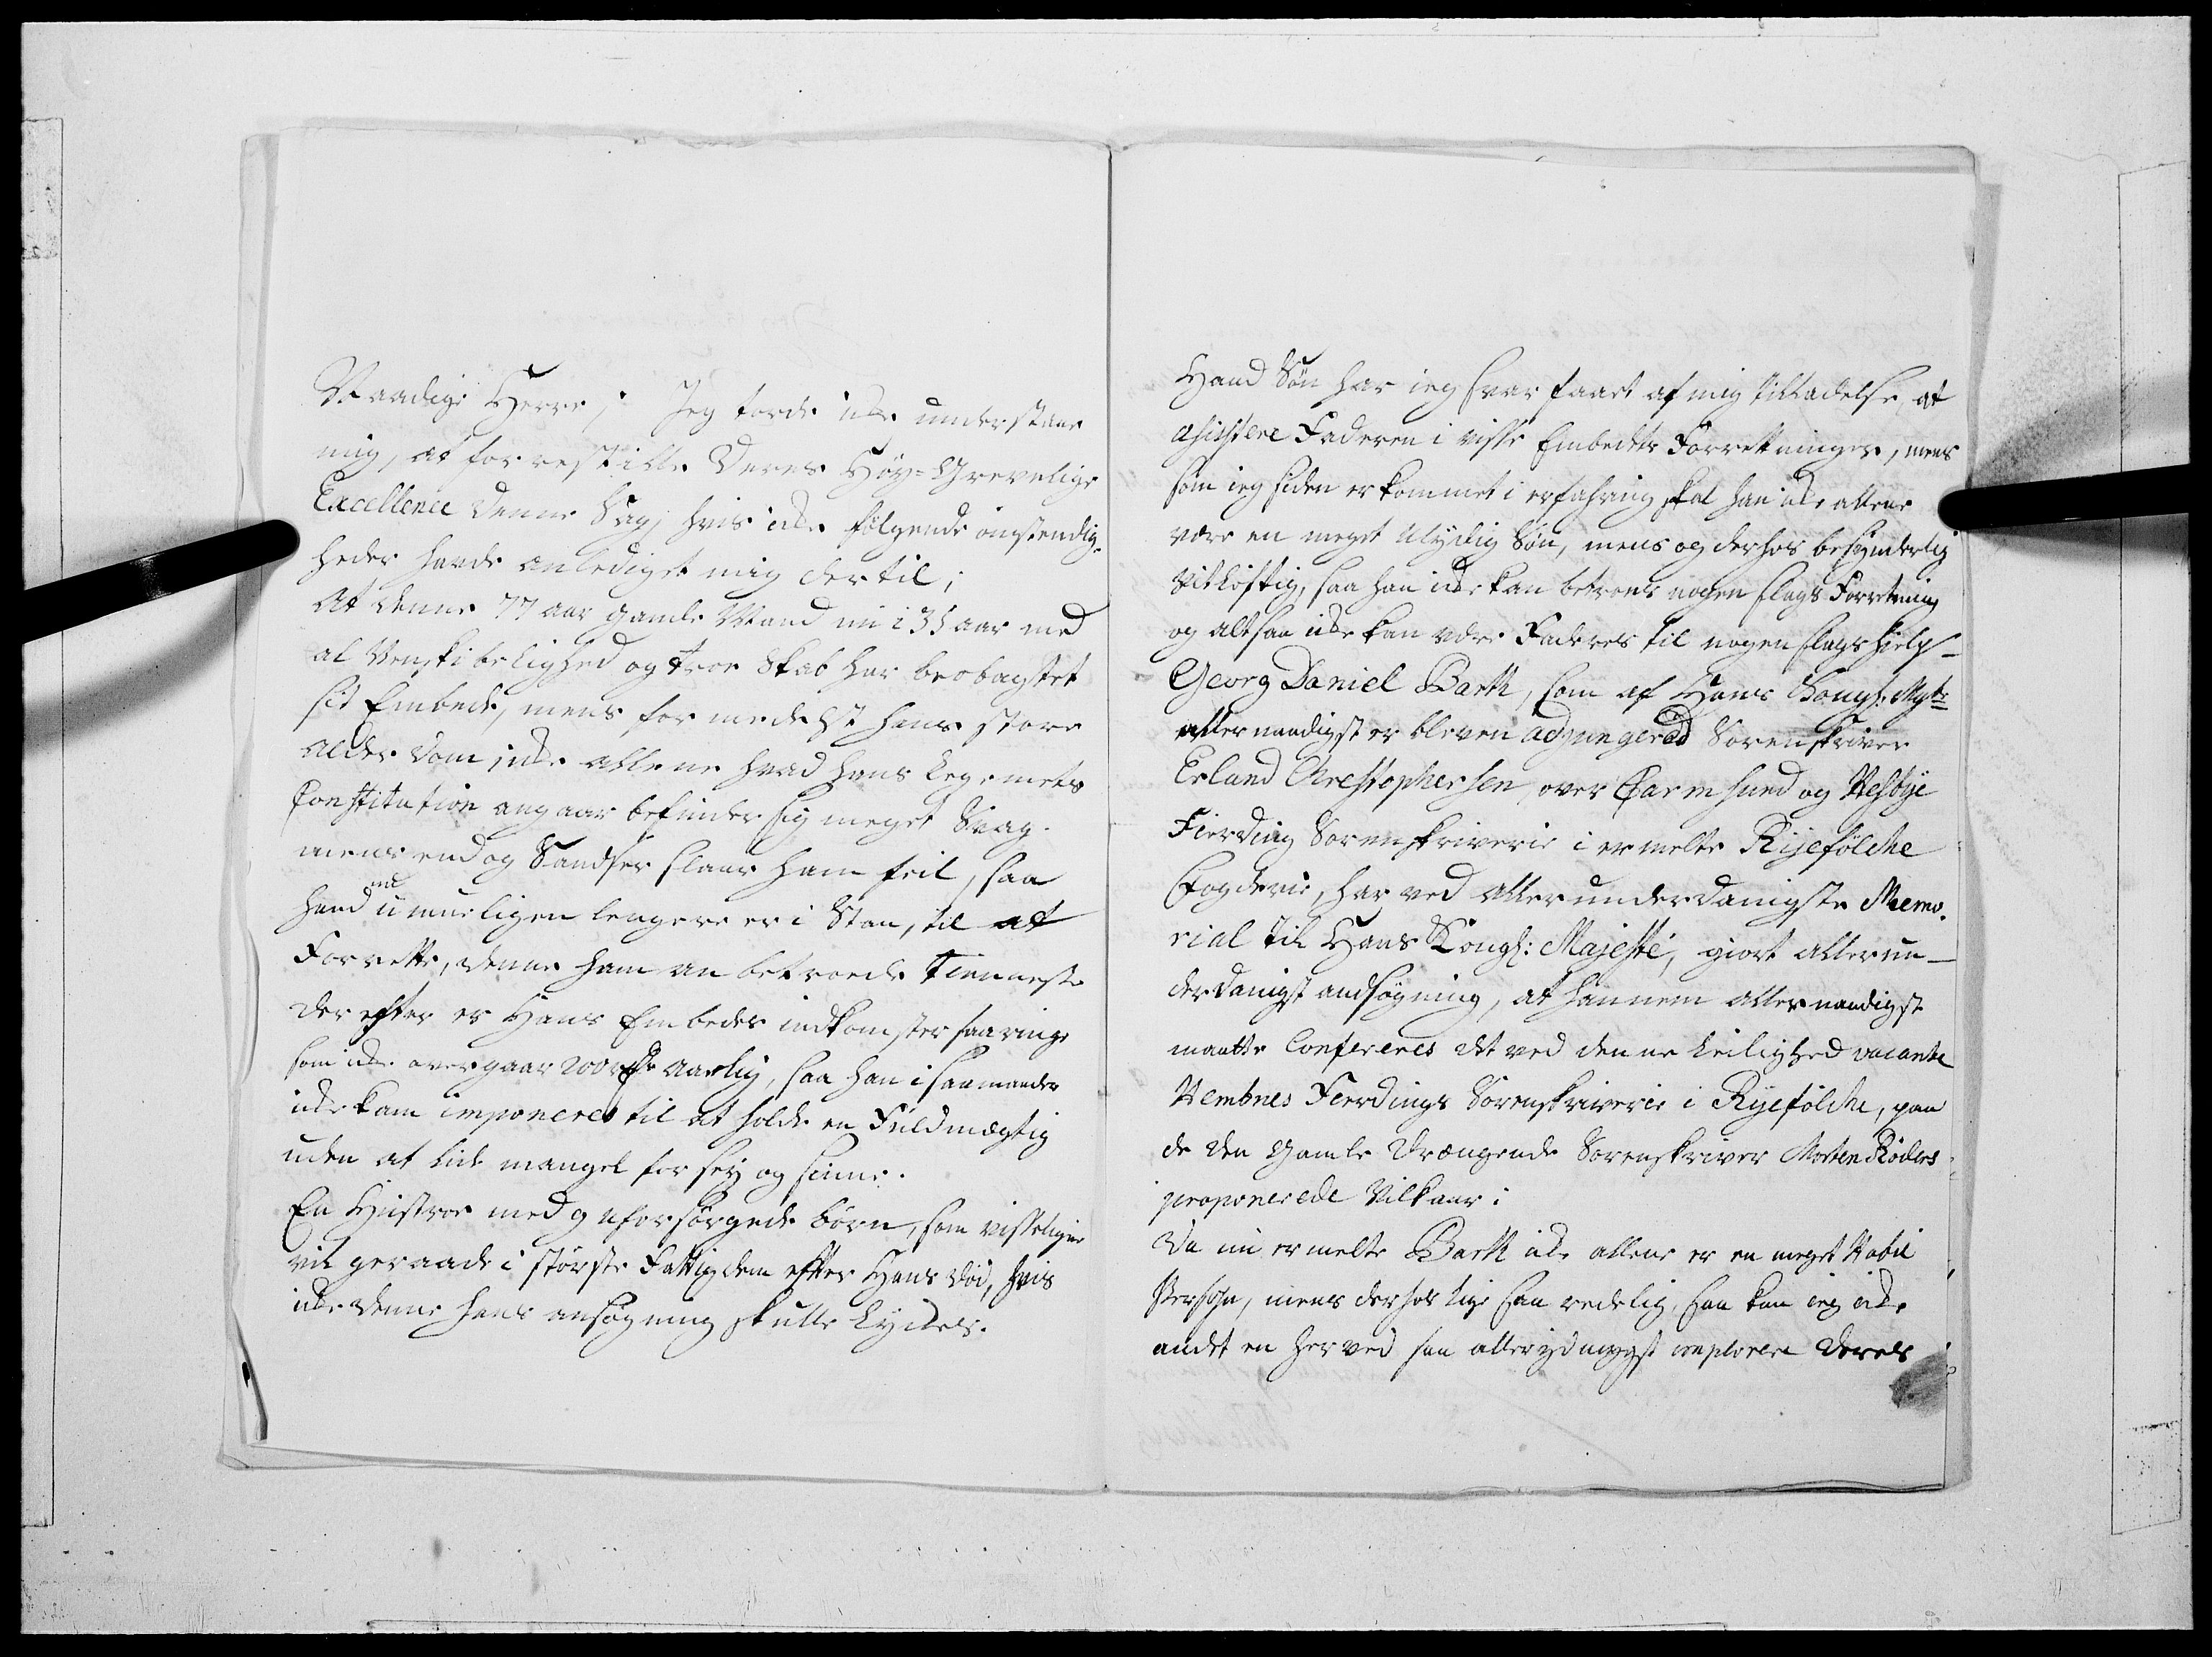 Naadige Herre; Jeg torde icke understaae
mig, at forrestille Deres Høy-Grevelige
Excellence denne Sag, hvis icke følgende omstendig-
heder hafde anlediget mig dertil;
At denne 77 aar gamle Mand nu i 35 aar med
al Renskibelighed og troe Skab har beobagtet
sit Embede, mens formedelst hans store
Alderdom, icke allene hvad hans legemets
Constitution angaar befinder sig meget Svag.
mens end og Sandser slaar ham feil, saa
hand nu umueligen lengere er i Stan, til at
Forrette, denne ham anbetroede Tienneste
der efter er Hans Embedes indkomster saa ringe
som icke overgaar 200 rdr Aarlig, saa han i saa maader
icke kam imponeres til at holde en Fuldmægtig
uden at lide mangel for sig og sinne.
En Hustroe med 9 uforsørgede børn, som visseligen
vil geraade i største Fattigdom efter Hans Død, hvis
icke denne hans ansøgning skulle Lyckes.
Hand Søn har ieg hvar faaet af mig tilladelse, at
asistere Faderen i visse Embedets Forretninger, mens
som ieg siden er kommet i erfahring skal han icke allene
være en meget ulydig Søn, mens og derhos besynderlig
Vitløftig, saa han icke kan betroes nogen slags Forretning
og altsaa icke kan være Faderes til nogen slags hielp-
Georg Daniel Barth, som af Hans Kongl: Mgts
allernaadigst er bleven adjungered Sorenskriver
Erland Chrestophersen, over Carmsund og Hesbye
Fierding Sorenskriverie i ermelte Ryefølche
Fogderie, har ved allerunderdanigste Memo-
rial til Hans Kongl: Majesté, giort allerun-
derdanigst andsøgning, at hannem allernaadigst
maatte Conferenes det ved denne leilighed vacante
Nembnes Fierdings Sorenskriverie i Ryefølche, paa
de den Gamle trængende Sorenskriver Morten Röders
proponerede Vilkaar;
Da nu ermelte Barth icke allene er en meget Habil
Persohn, mens derhos lige saa redelig, saa kan ieg icke
andet en herved saa allerydmygst implorere Deres